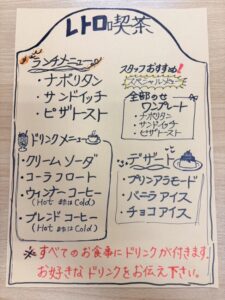 レトロ喫茶
ランチメニュー
・ナポリタン
・サンドイッチ
・ピザトースト
スタッフおすすめ!
スペシャルメニュー
全部のせ
ワンプレート
・ナポリタン
・サンドイッチ
・ピザトースト
ドリンクメニュー
・クリームソーダ
・コーラフロート
・ウィンナーコーヒー
(Hot または Cold)
・ブレンドコーヒー
(Hot または Cold)
デザート
・プリンアラモード
・バニラアイス
・チョコアイス
※すべてのお食事にドリンクが付きます。
お好きなドリンクをお伝え下さい。